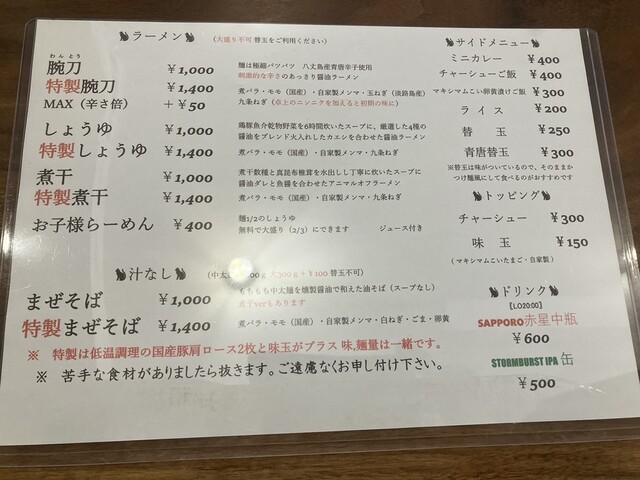 ラーメン (大盛り不可 替玉をご利用ください)
わんとう
腕刀 ¥1,000 麺は極細パツパツ 八丈島産青唐辛子使用
特製腕刀 ¥1,400 刺激的な辛さのあっさり醤油ラーメン
MAX(辛さ倍) +¥50 煮バラ・モモ(国産)・自家製メンマ・玉ねぎ(淡路島産)
九条ねぎ(卓上のニンニクを加えると初期の味に)
しょうゆ ¥1,000 鶏豚魚介乾物野菜を6時間炊いたスープに、厳選した4種の
特製しょうゆ ¥1,400 醤油をブレンド火入れしたカエシを合わせた醤油ラーメン
煮バラ・モモ(国産)・自家製メンマ・九条ねぎ
煮干 ¥1,000 煮干数種と真昆布椎茸を水出しし丁寧に炊いたスープに
特製煮干 ¥1,400 醤油ダレと魚醤を合わせたアニマルオフラーメン
煮バラ・モモ(国産)・自家製メンマ・九条ねぎ
お子様らーめん ¥400 麺1/2のしょうゆ
無料で大盛り(2/3)にできます ジュース付き
汁なし (中太 300g+¥100 替玉不可)
まぜそば ¥1,000 もちもち中太麺を燻製醤油で和えた油そば(スープなし)
煮干verもあります
特製まぜそば ¥1,400 煮バラ・モモ(国産)・自家製メンマ・白ねぎ・ごま・卵黄
※ 特製は低温調理の国産豚肩ロース2枚と味玉がプラス 味,麺量は一緒です。
※ 苦手な食材がありましたら抜きます。ご遠慮なくお申し付け下さい。
サイドメニュー
ミニカレー ¥400
チャーシューご飯 ¥400
マキシマムこい卵黄漬け飯 ¥300
ライス ¥200
替玉 ¥250
青唐替玉 ¥300
※替玉は味がついているので、そのままか
つけ麺風にして食べるのがおすすめです
トッピング
チャーシュー ¥300
味玉 ¥150
(マキシマムこいたまご・自家製)
ドリンク
[LO20:00]
SAPPORO赤星中瓶
¥600
STORMBURST IPA 缶
¥500